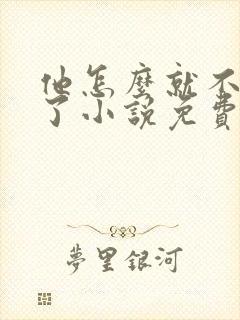 他怎麼就不
了小說免費
夢里銀河